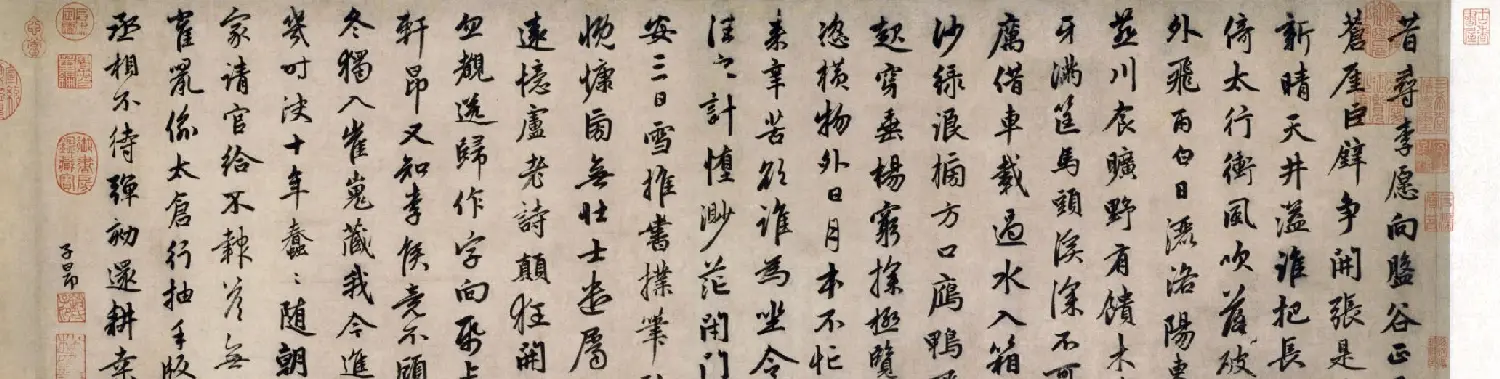 昔尋李愿向盤谷正
蒼崖巨壁爭開張是
新晴天井溢誰把長
倚太行衝風吹落破
外飛雨白日灑洛陽東
燕川衣曠野有饋木
牙滿筐馬頭溪深不可
厲借車載過水入箱
沙綠浪搒方口鴈鴨
起穿垂楊窮探極覽
恣橫物外日月本不忙
來辛苦欲誰為坐令
往之計墮渺茫閉門
安三日雪推書撲筆
慨慷旁無壯士遣屬
遠憶盧老詩顛狂開
忽覩送歸作字向紙上
軒昂又知李侯竟不顧
冬獨入崔嵬藏我今進
幾時決十年蠢〻隨朝
家請官給不報答無
雀鼠偷太倉行抽手版
丞相不待彈劾還耕桑
子昂